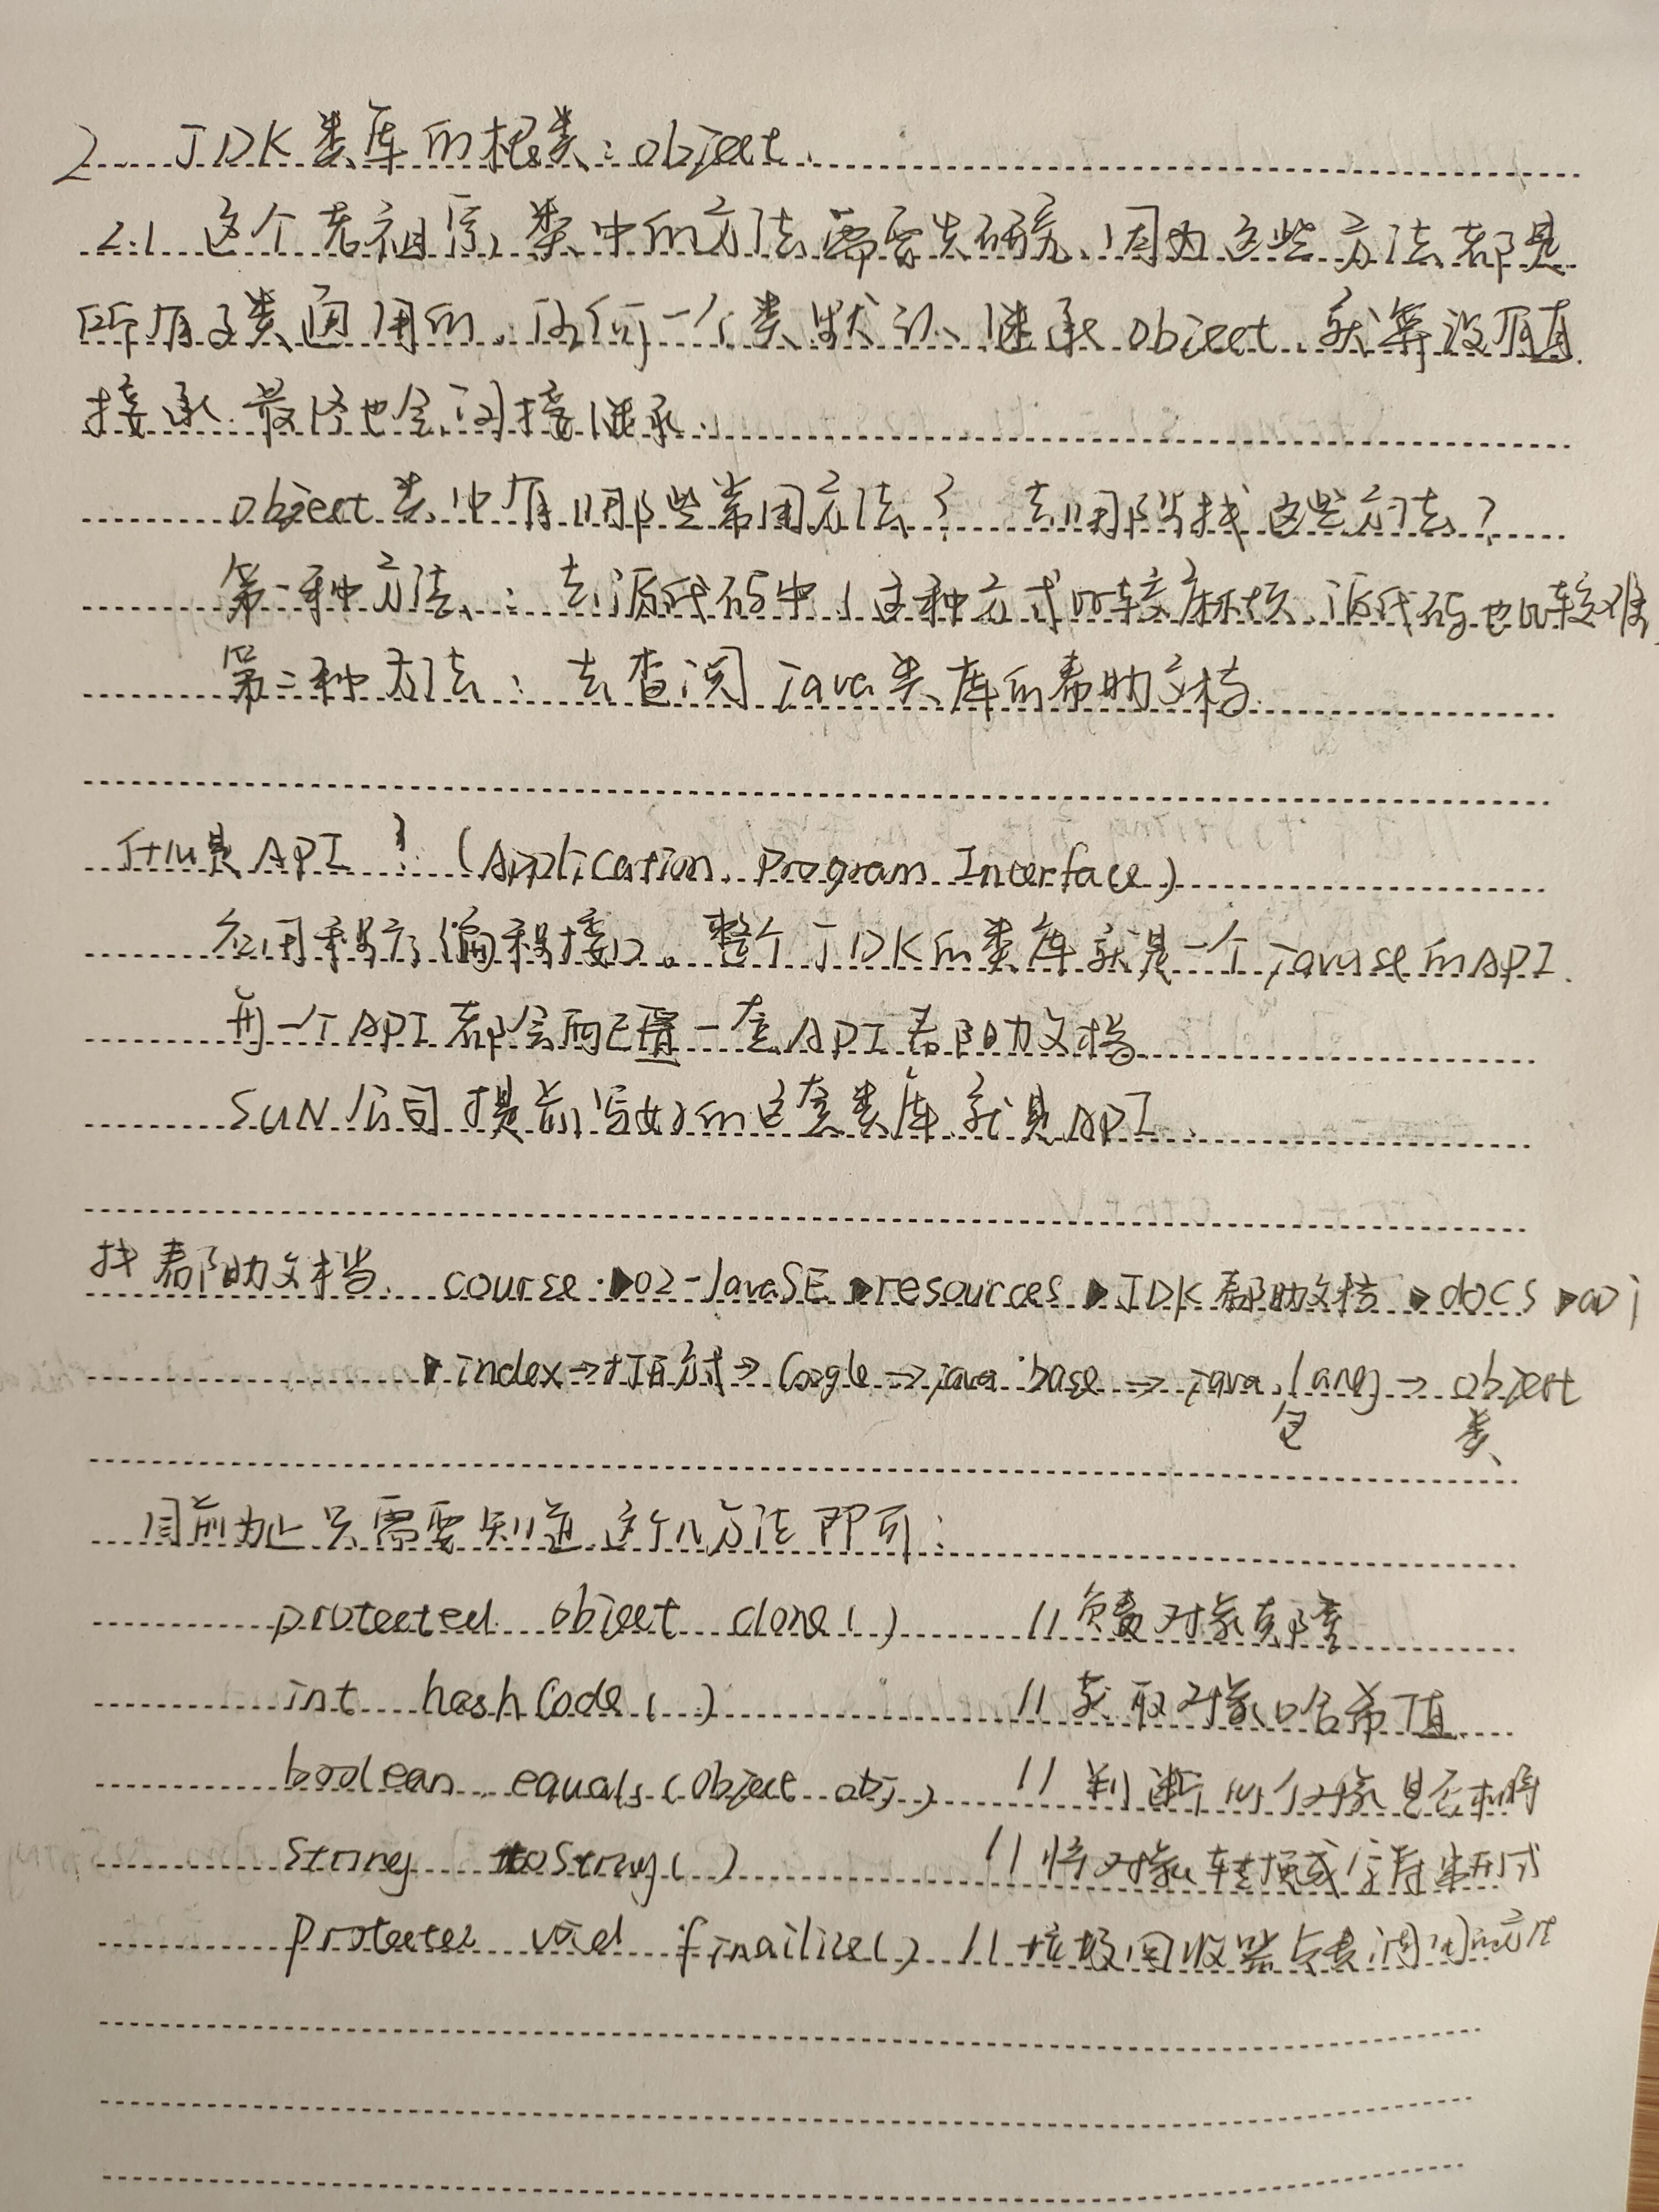 2 JDK类库的根类：object
2.1 这个老祖宗类中的方法需要先研究，因为这些方法都是
所有子类通用的，任何一个类默认继承object，就算没有直
接承，最终也会间接继承.
object类中有哪些常用方法？ 去哪所找这些方法？
第一种方法： 去源代码中（这种方式比较麻烦，源代码也比较难
第二种方法： 去查阅java类库的帮助文档
什么是API？（Application Program Interface）
应用程序编程接口。整个JDK的类库就是一个javase的API.
每一个API都会配置一套API帮助文档
SUN公司提前写好的这套类库就是API.
找帮助文档 course▶02-JavaSE▶resources▶JDK帮助文档▶docs▶api
▶index→打开方式→Google→java.base→java.lang→object
包 类
目前为止只需要知道这个几方法即可：
protected object clone() //负责对象克隆
int hashCode() //获取对象哈希值
boolean equals(object obj) //判断两个对象是否相等
String toString() //将对象转换成字符串形式
protected void finailize() //垃圾回收器负责调用的方法